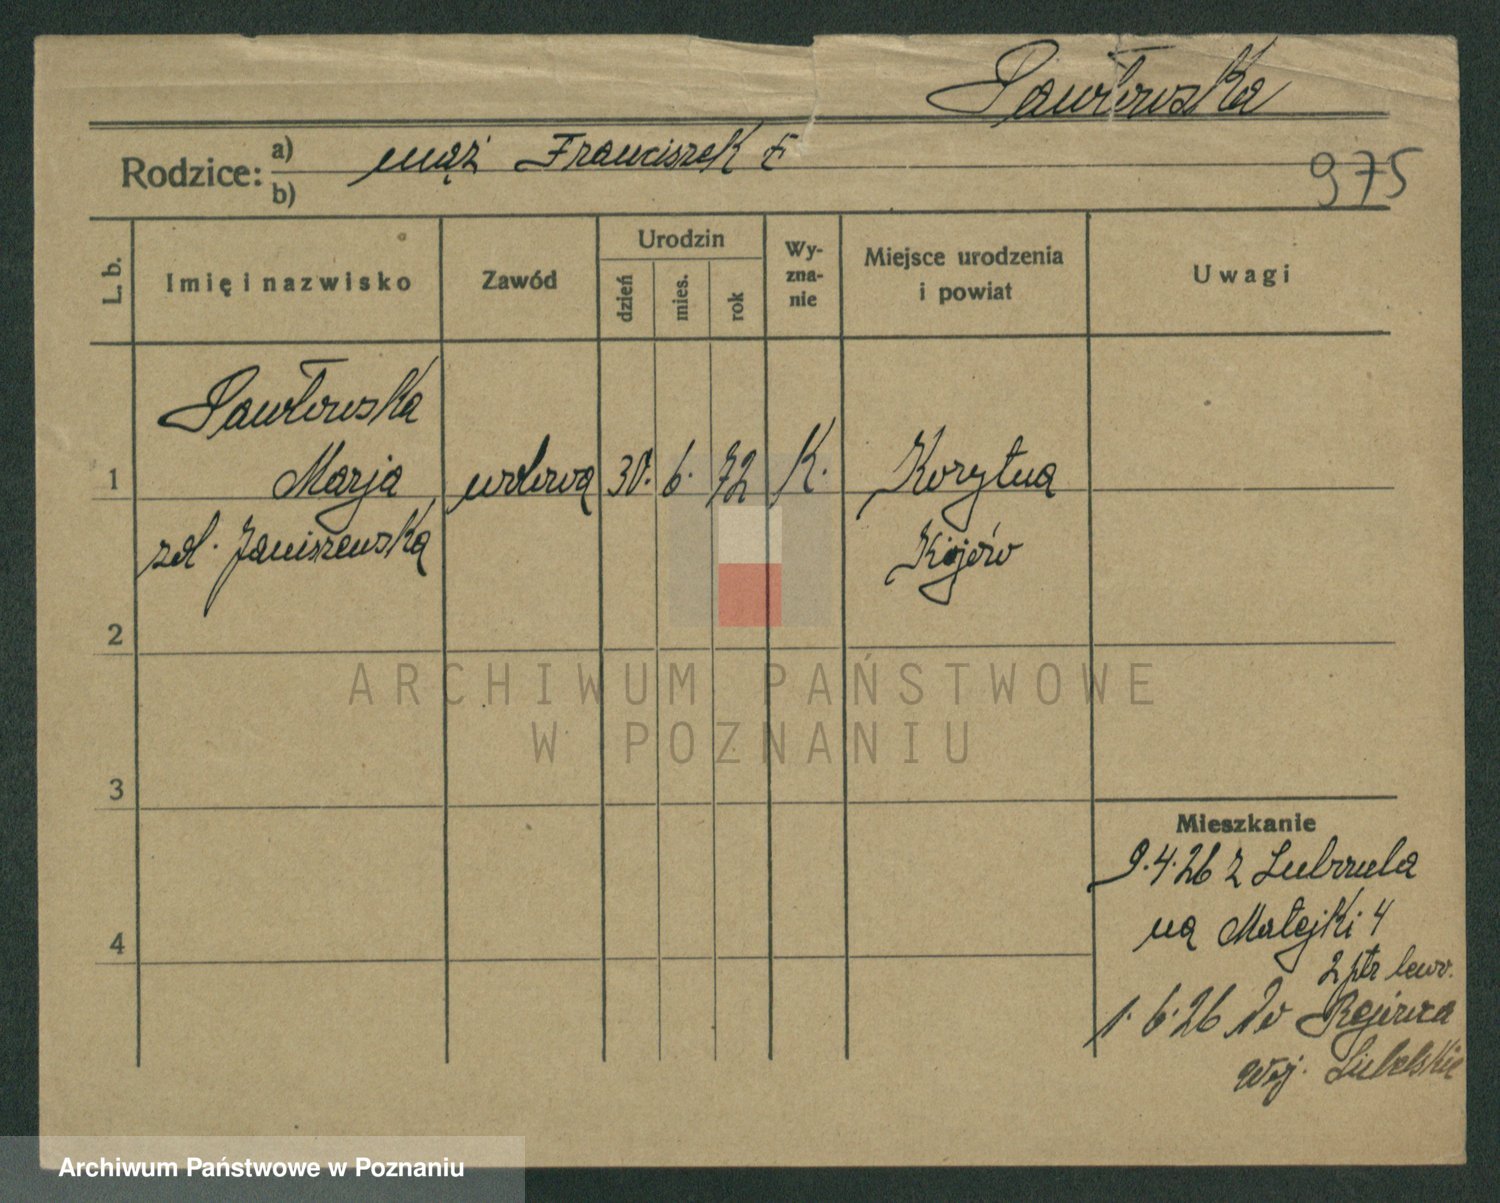 Pawłowska
Rodzice:
a) mąż Franciszek
b)
975
L. b.
Imię i nazwisko
Zawód
Urodzin
dzień
mies.
rok
Wy-
zna-
nie
Miejsce urodzenia
i powiat
Uwagi
Pawłowska
1 Marja wdowa 30. 6. 72 K. Korytna
zd. Janiszewska Kijów
2
3
4
Mieszkanie
9.4.26 z
na Matejki 4
2 ptr lewo.
1.6.26 do
woj. Lubelskie
ARCHIWUM PAŃSTWOWE
W POZNANIU
Archiwum Państwowe w Poznaniu